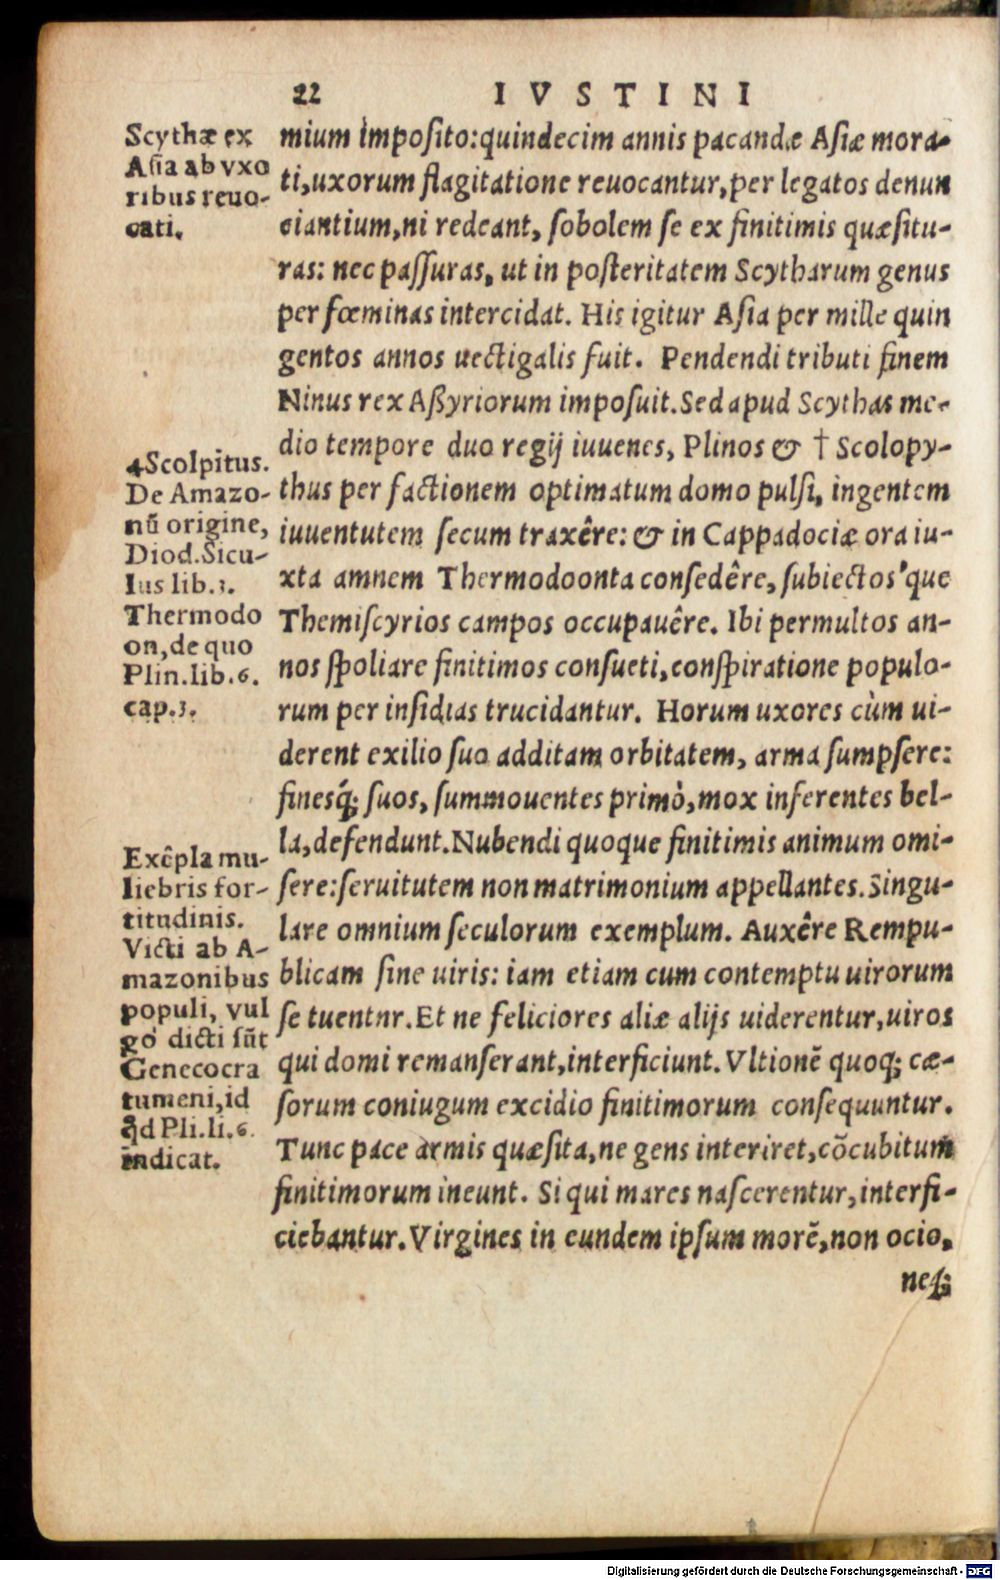 22 IVSTINI
Scythæ ex
Asia ab vxo
ribus reuo-
cati.
mium imposito:quindecim annis pacandæ Asiæ mora-
ti,uxorum flagitatione reuocantur,per legatos denun
ciantium,ni redeant, sobolem se ex finitimis quæsitu-
ras: nec passuras, ut in posteritatem Scytharum genus
per fœminas intercidat. His igitur Asia per mille quin
gentos annos uectigalis fuit. Pendendi tributi finem
Ninus rex Aßyriorum imposuit.Sed apud Scythas me-
dio tempore duo regij iuuenes, Plinos & † Scolopy-
thus per factionem optimatum domo pulsi, ingentem
iuuentutem secum traxêre: & in Cappadociæ ora iu-
xta amnem Thermodoonta consedêre, subiectos'que
Themiscyrios campos occupauêre. Ibi permultos an-
nos spoliare finitimos consueti,conspiratione populo-
rum per insidias trucidantur. Horum uxores cùm ui-
derent exilio suo additam orbitatem, arma sumpsere:
finesq́; suos, summouentes primò,mox inferentes bel-
la,defendunt.Nubendi quoque finitimis animum omi-
sere:seruitutem non matrimonium appellantes.Singu-
lare omnium seculorum exemplum. Auxêre Rempu-
blicam sine uiris: iam etiam cum contemptu uirorum
se tuentnr.Et ne feliciores aliæ alijs uiderentur,uiros
qui domi remanserant,interficiunt. Vltionẽ quoq; cæ-
sorum coniugum excidio finitimorum consequuntur.
Tunc pace armis quæsita,ne gens interiret,cõcubitum
finitimorum ineunt. Si qui mares nascerentur,interfi-
ciebantur.Virgines in eundem ipsum morẽ,non ocio,
neq́;
4Scolpitus.
De Amazo-
nũ origine,
Diod.Sicu-
lus lib.3.
Thermodo
on,de quo
Plin.lib.6.
cap.3.
Exẽpla mu-
liebris for-
titudinis.
Victi ab A-
mazonibus
populi, vul
go dicti sũt
Genecocra
tumeni,id
q̃d Pli.li.6.
indicat.
Digitalisierung gefördert durch die Deutsche Forschungsgemeinschaft - DFG